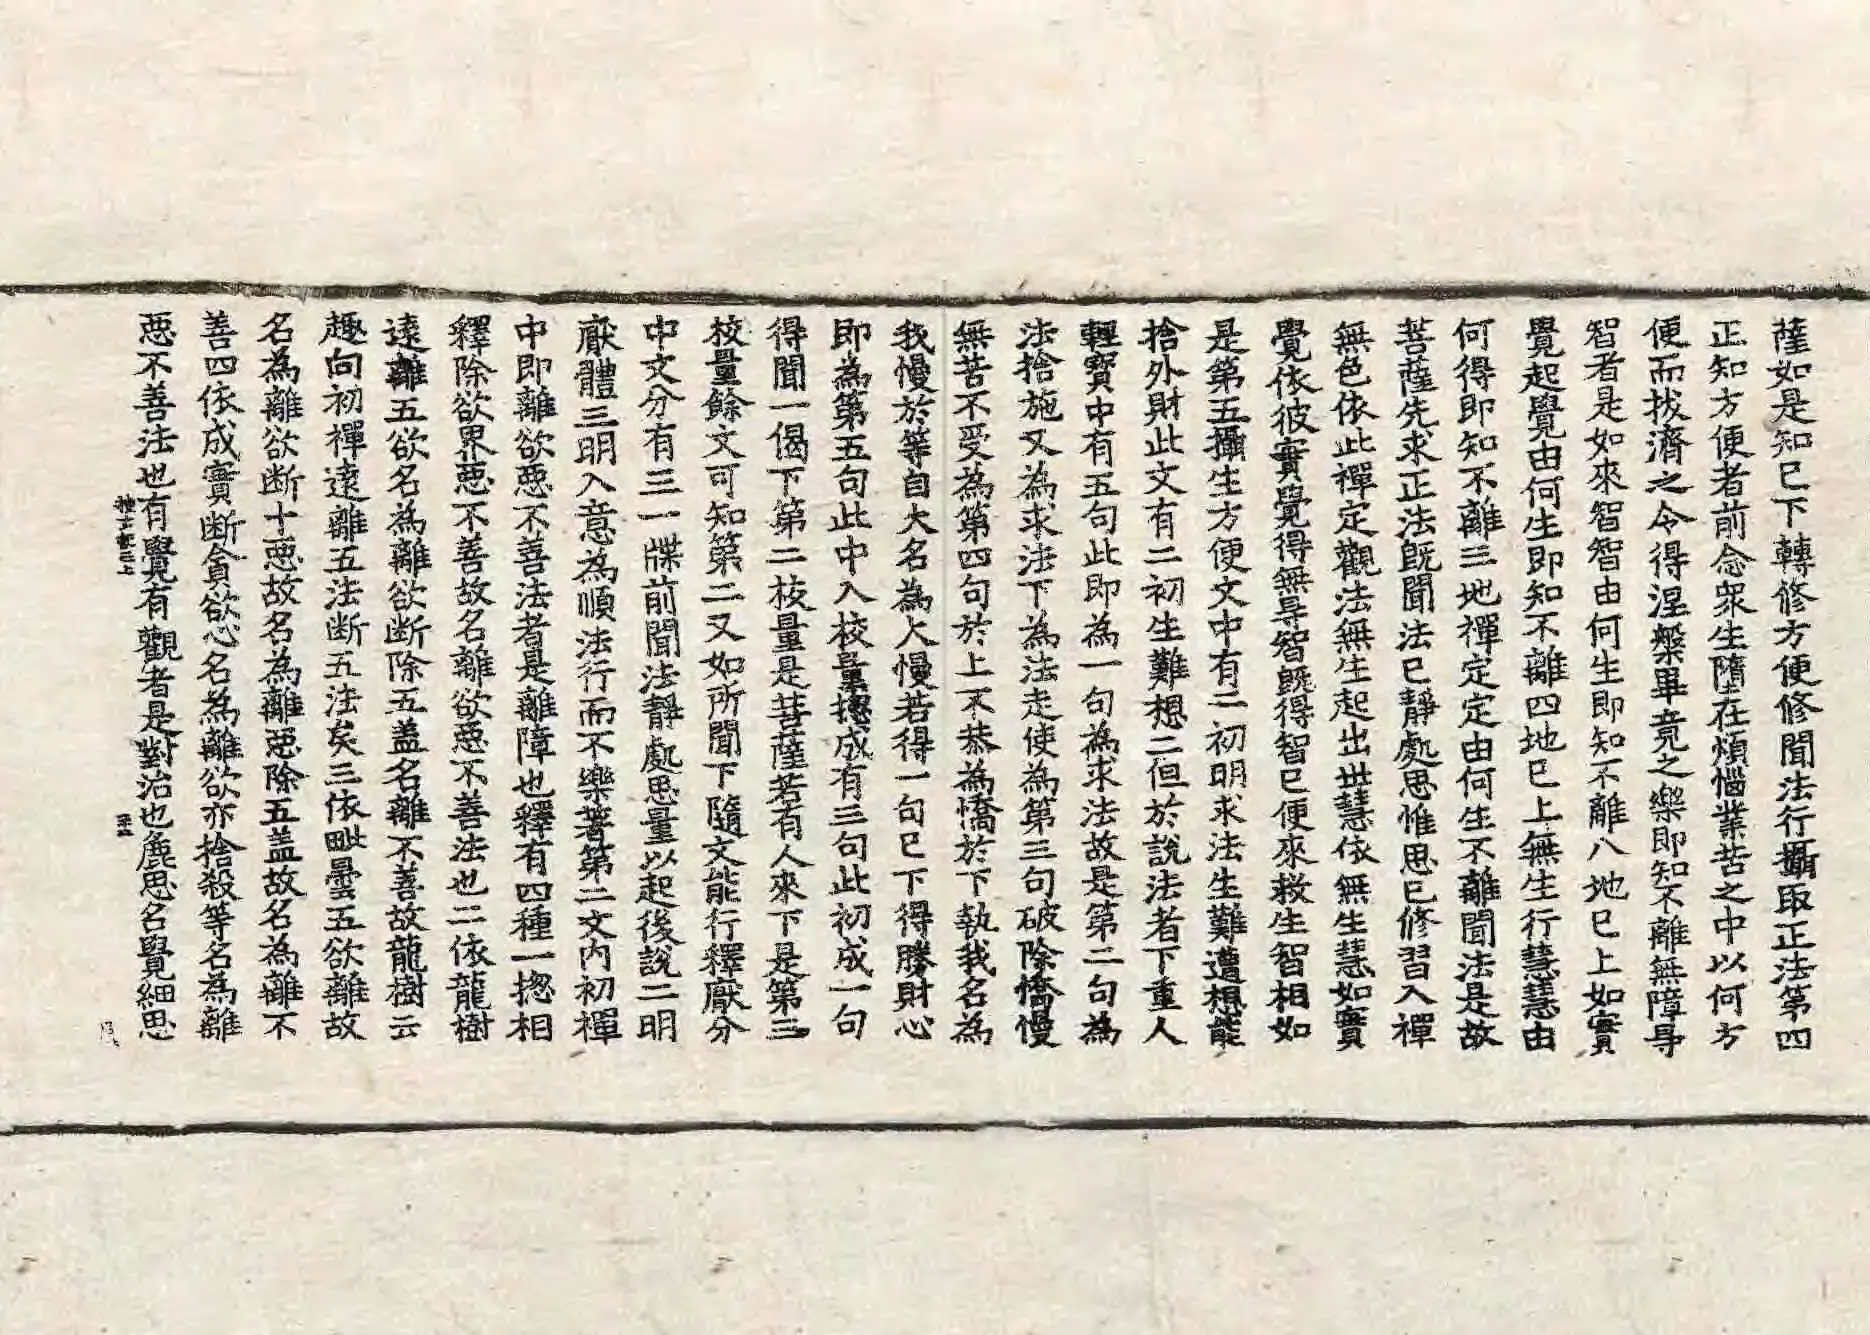 薩如是知已下轉修方便修聞法行攝取正法第四
正知方便者前念衆生墮在煩惱業苦之中以何方
便而拔濟之令得涅槃畢竟之樂即知不離無障㝵
智者是如來智智由何生即知不離八地已上如實
覺起覺由何生即知不離四地已上無生行慧慧由
何得即知不離三地禪定定由何生不離聞法是故
菩薩先求正法既聞法已靜處思惟思已修習入禪
無色依此禪定觀法無生起出世慧依無生慧如實
覺依彼實覺覺得無㝵智既得智已便來救生智相如
是第五攝生方便文中有二初明求法生難遭想能
捨外財此文有二初生難想二但於說法者下重人
輕寶中有五句此即為一句為求法故是第二句為
法捨施又為求法下為法走使為第三句破除憍慢
無苦不受為第四句於上不恭為憍於下執我名為
我慢於等自大名為大慢若得一句已下得勝財心
即為第五句此中入校量揔成有三句此初成一句
得聞一偈下第二校量是菩薩若有人來下是第三
校量餘文可知第二又如所聞下隨文能行釋猒分
中文分有三一牒前聞法靜處思量以起後說二明
猒體三明入意為順法行而不樂著第二文內初禪
中即離欲惡不善法者是離障也釋有四種一揔相
釋除欲界惡不善故名離欲惡不善法也二依龍樹
遠離五欲名為離欲断除五盖名離不善故龍樹云
趣向初禪遠離五法断五法矣三依毗曇五欲離故
名為離欲断十惡故名為離惡除五盖故名為離不
善四依成實断貪欲心名為離欲亦捨殺等名為離
惡不善法也有覺有觀者是對治也麁思名覺細思